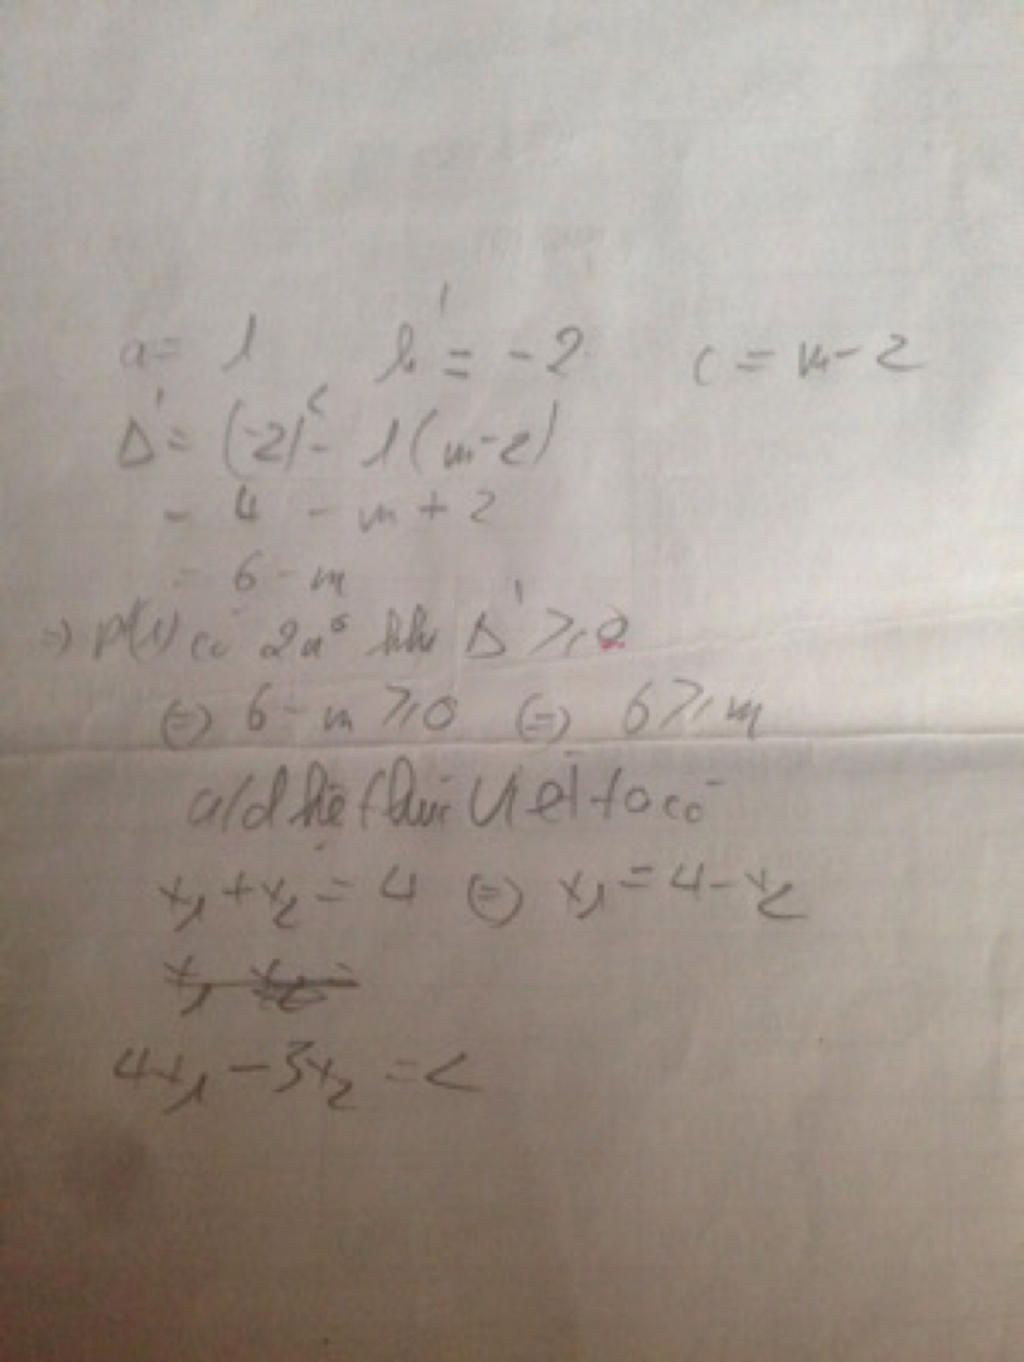 a = 1 b' = -2 c = m - 2
Δ' = (-2)² - 1(m-2)
= 4 - m + 2
= 6 - m
=> p(1) có 2n⁰ khi Δ' ≥ 0
<=> 6 - m ≥ 0 <=> 6 ≥ m
a/d hệ thức Viet ta có
x₁ + x₂ = 4 <=> x₁ = 4 - x₂
x₁ x₂ =
4x₁ - 3x₂ = 2